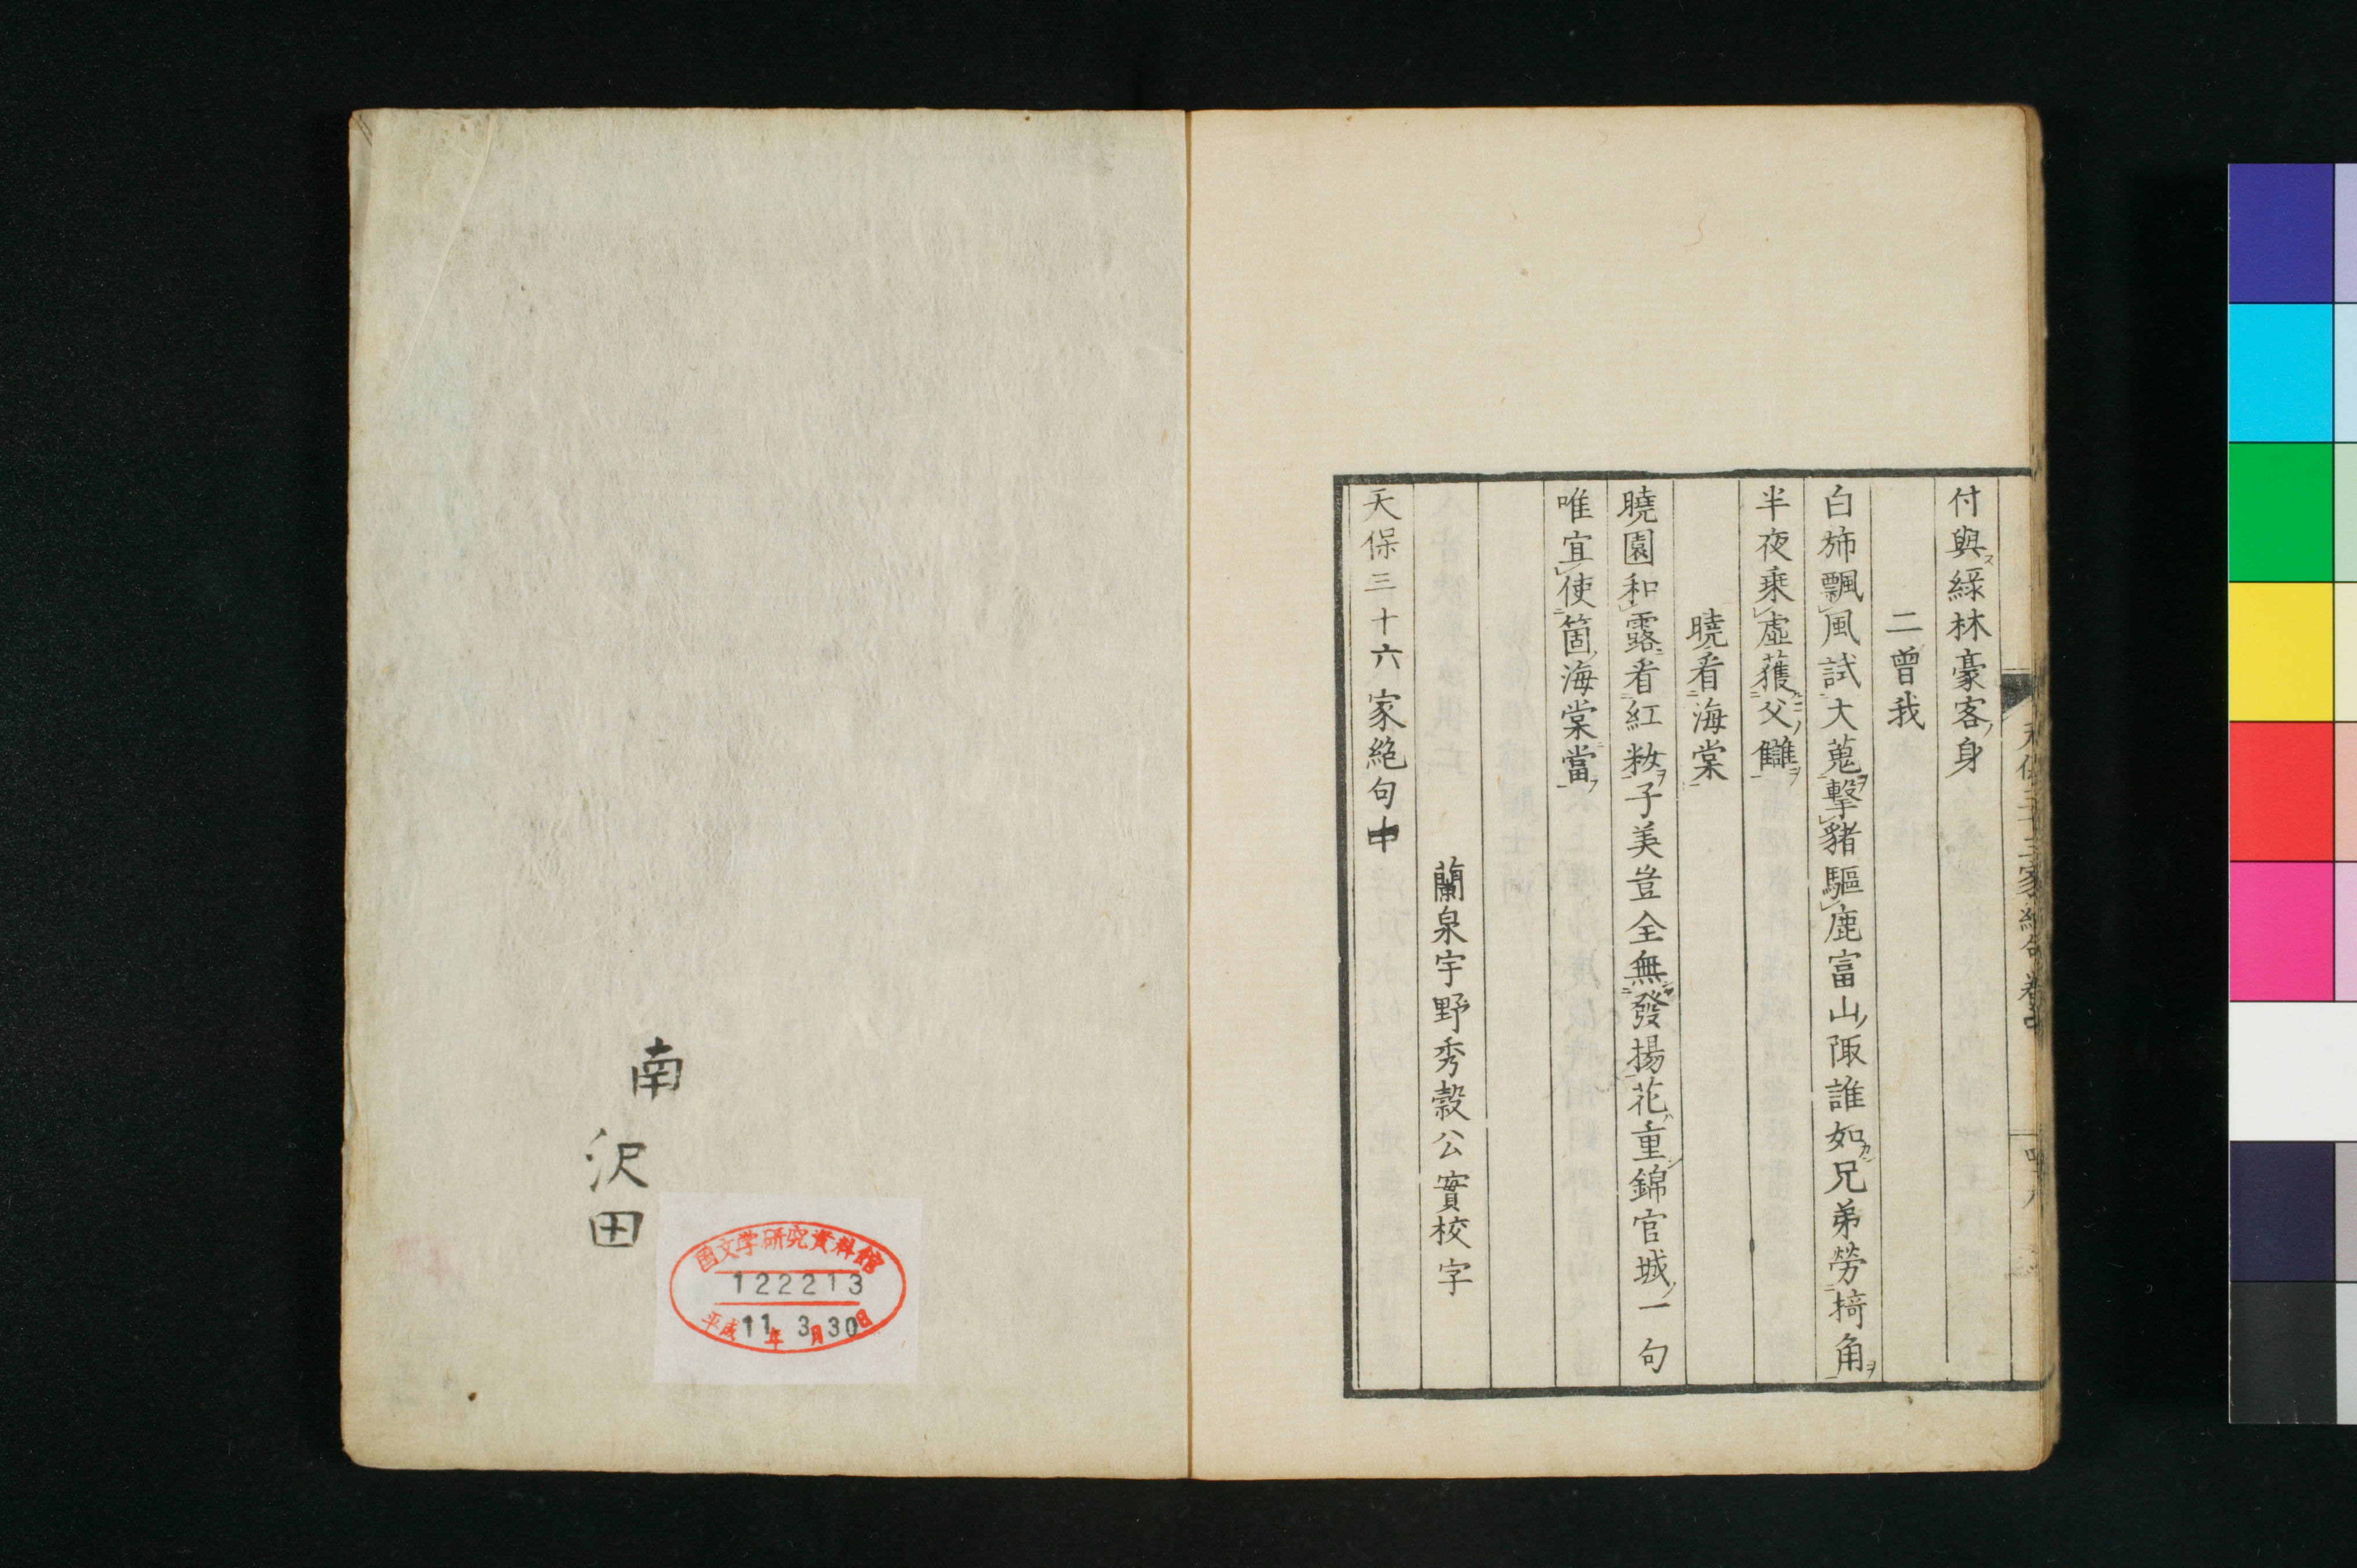 付與綠林豪客身
二曾我
白斾飄風試大蒐擊豬驅鹿富山陬誰如兄弟勞掎角
半夜乘虛獲父讎
曉看海棠
曉園和露看紅粧子美豈全無發揚花重錦官城一句
唯宜使箇海棠當
蘭泉宇野秀穀公實校字
天保三十六家絕句中
南
沢
田
国文学研究資料館
122213
平成11年3月30日